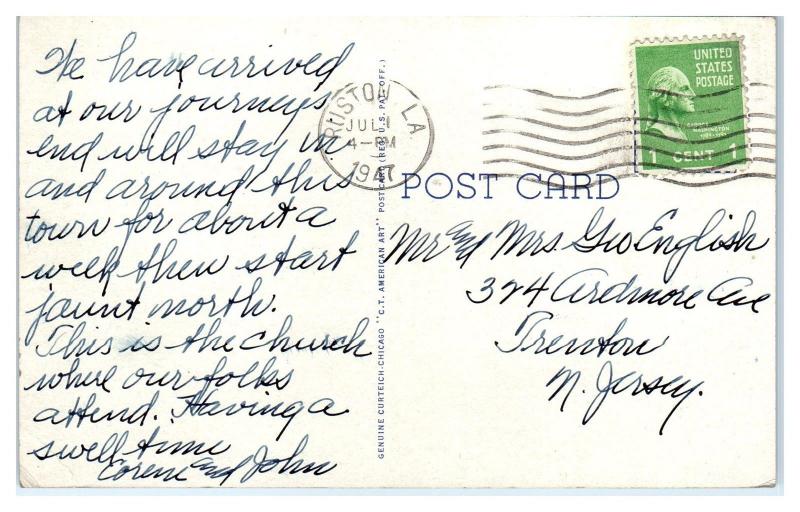 We have arrived
at our journeys
end will stay in
and around this
town for about a
week then start
jaunt north.
This is the church
where our folks
attend. Having a
swell time
Corene and John
GENUINE CURTEICH-CHICAGO "C.T. AMERICAN ART" POST CARD (REG. U.S. PAT. OFF.)
RUSTON LA
JUL 1
4-PM
1947
UNITED
STATES
POSTAGE
GEORGE
WASHINGTON
1 CENT 1
POST CARD
Mr and Mrs Geo English
324 Ardmore Ave
Trenton
N. Jersey.